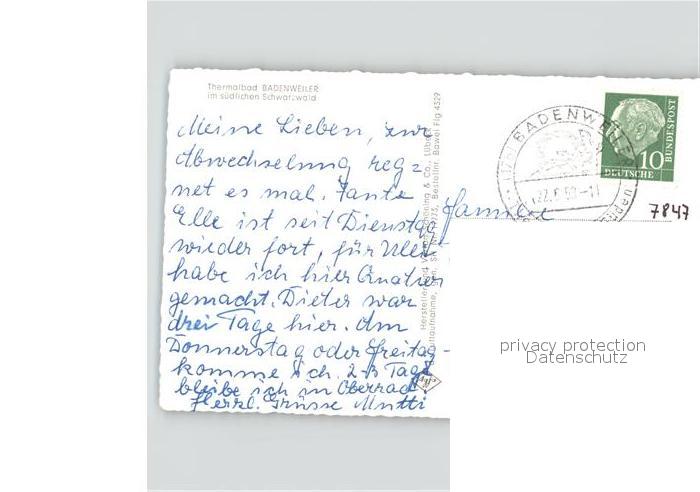 Thermalbad BADENWEILER
im südlichen Schwarzwald
Meine Lieben, zur
Abwechselung reg=
net es mal. Tante
Elle ist seit Dienstag
wieder fort, für
habe ich hier Quatier
gemacht. Dieter war
drei Tage hier. Am
Donnerstag oder Freitag
komme ich. 2-3 Tage
bleibe ich in Oberrad.
Herzl. Grüsse Mutti
Schöning & Co., Lübeck
Bestellnr. Bawei Flg 4529
Familie
BADENWEILER
10
DEUTSCHE
BUNDESPOST
7847
privacy protection
Datenschutz